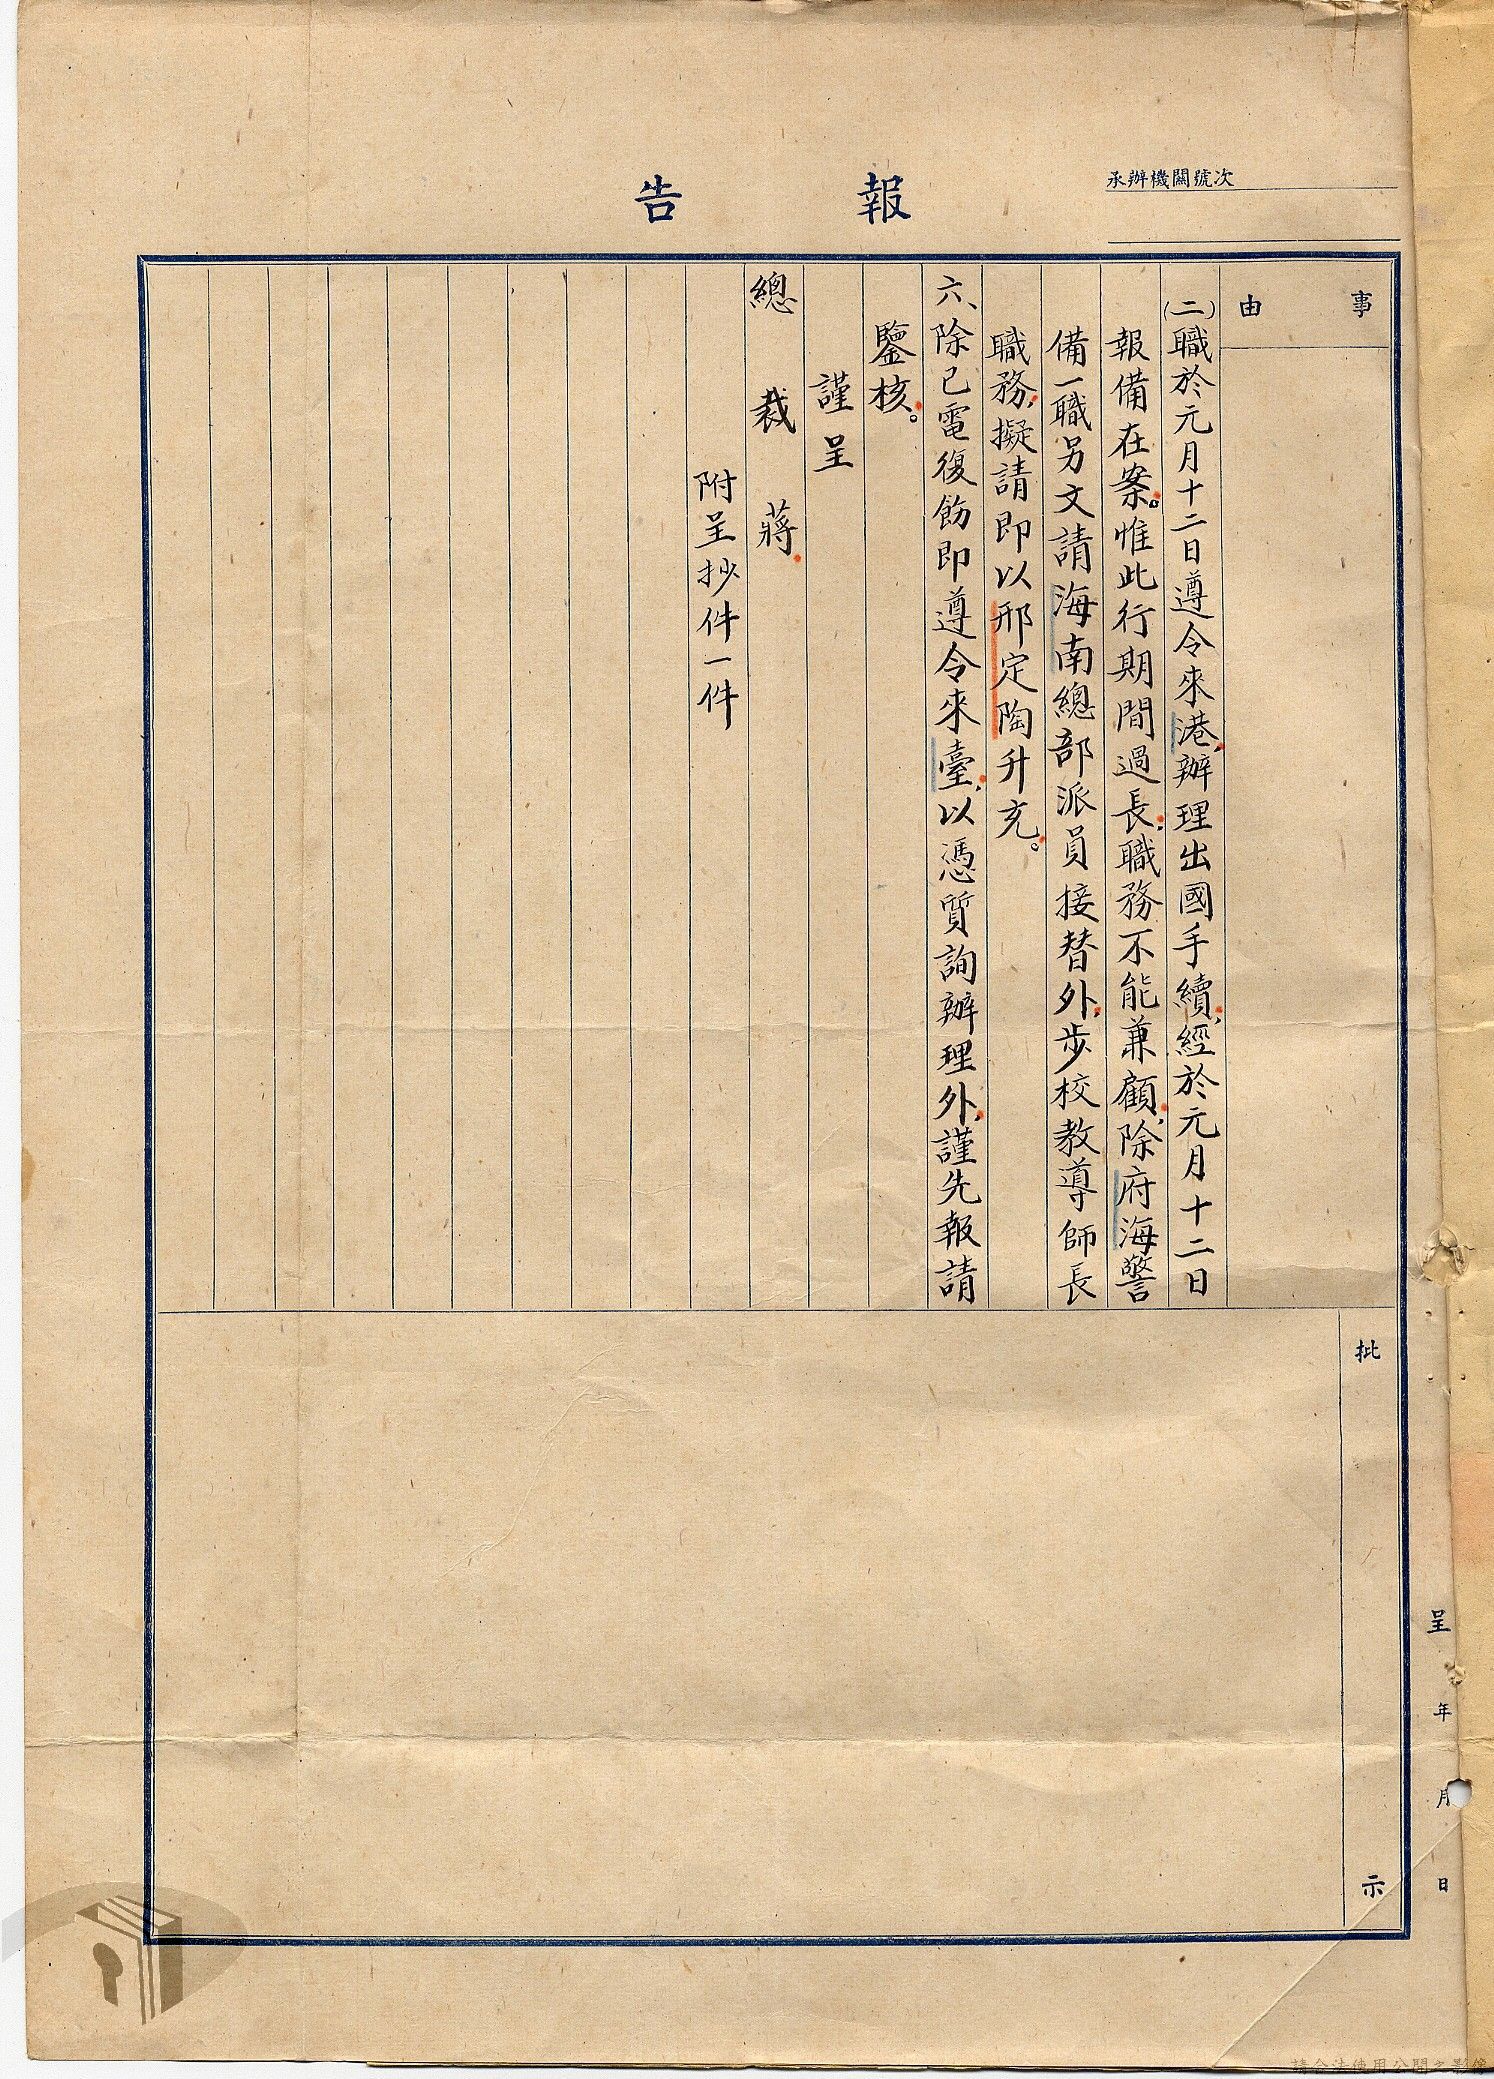 承辦機關號次
報告
事由
(二)職於元月十二日遵令來港,辦理出國手續,經於元月十二日
報備在案。惟此行期間過長,職務不能兼顧,除府海警
備一職另文請海南總部派員接替外,步校教導師長
職務,擬請即以邢定陶升充。
六、除已電復飭即遵令來臺,以憑質詢辦理外,謹先報請
鑒核。
謹呈
總裁蔣
附呈抄件一件
批示
呈 年 月 日
請合法使用公開之影像